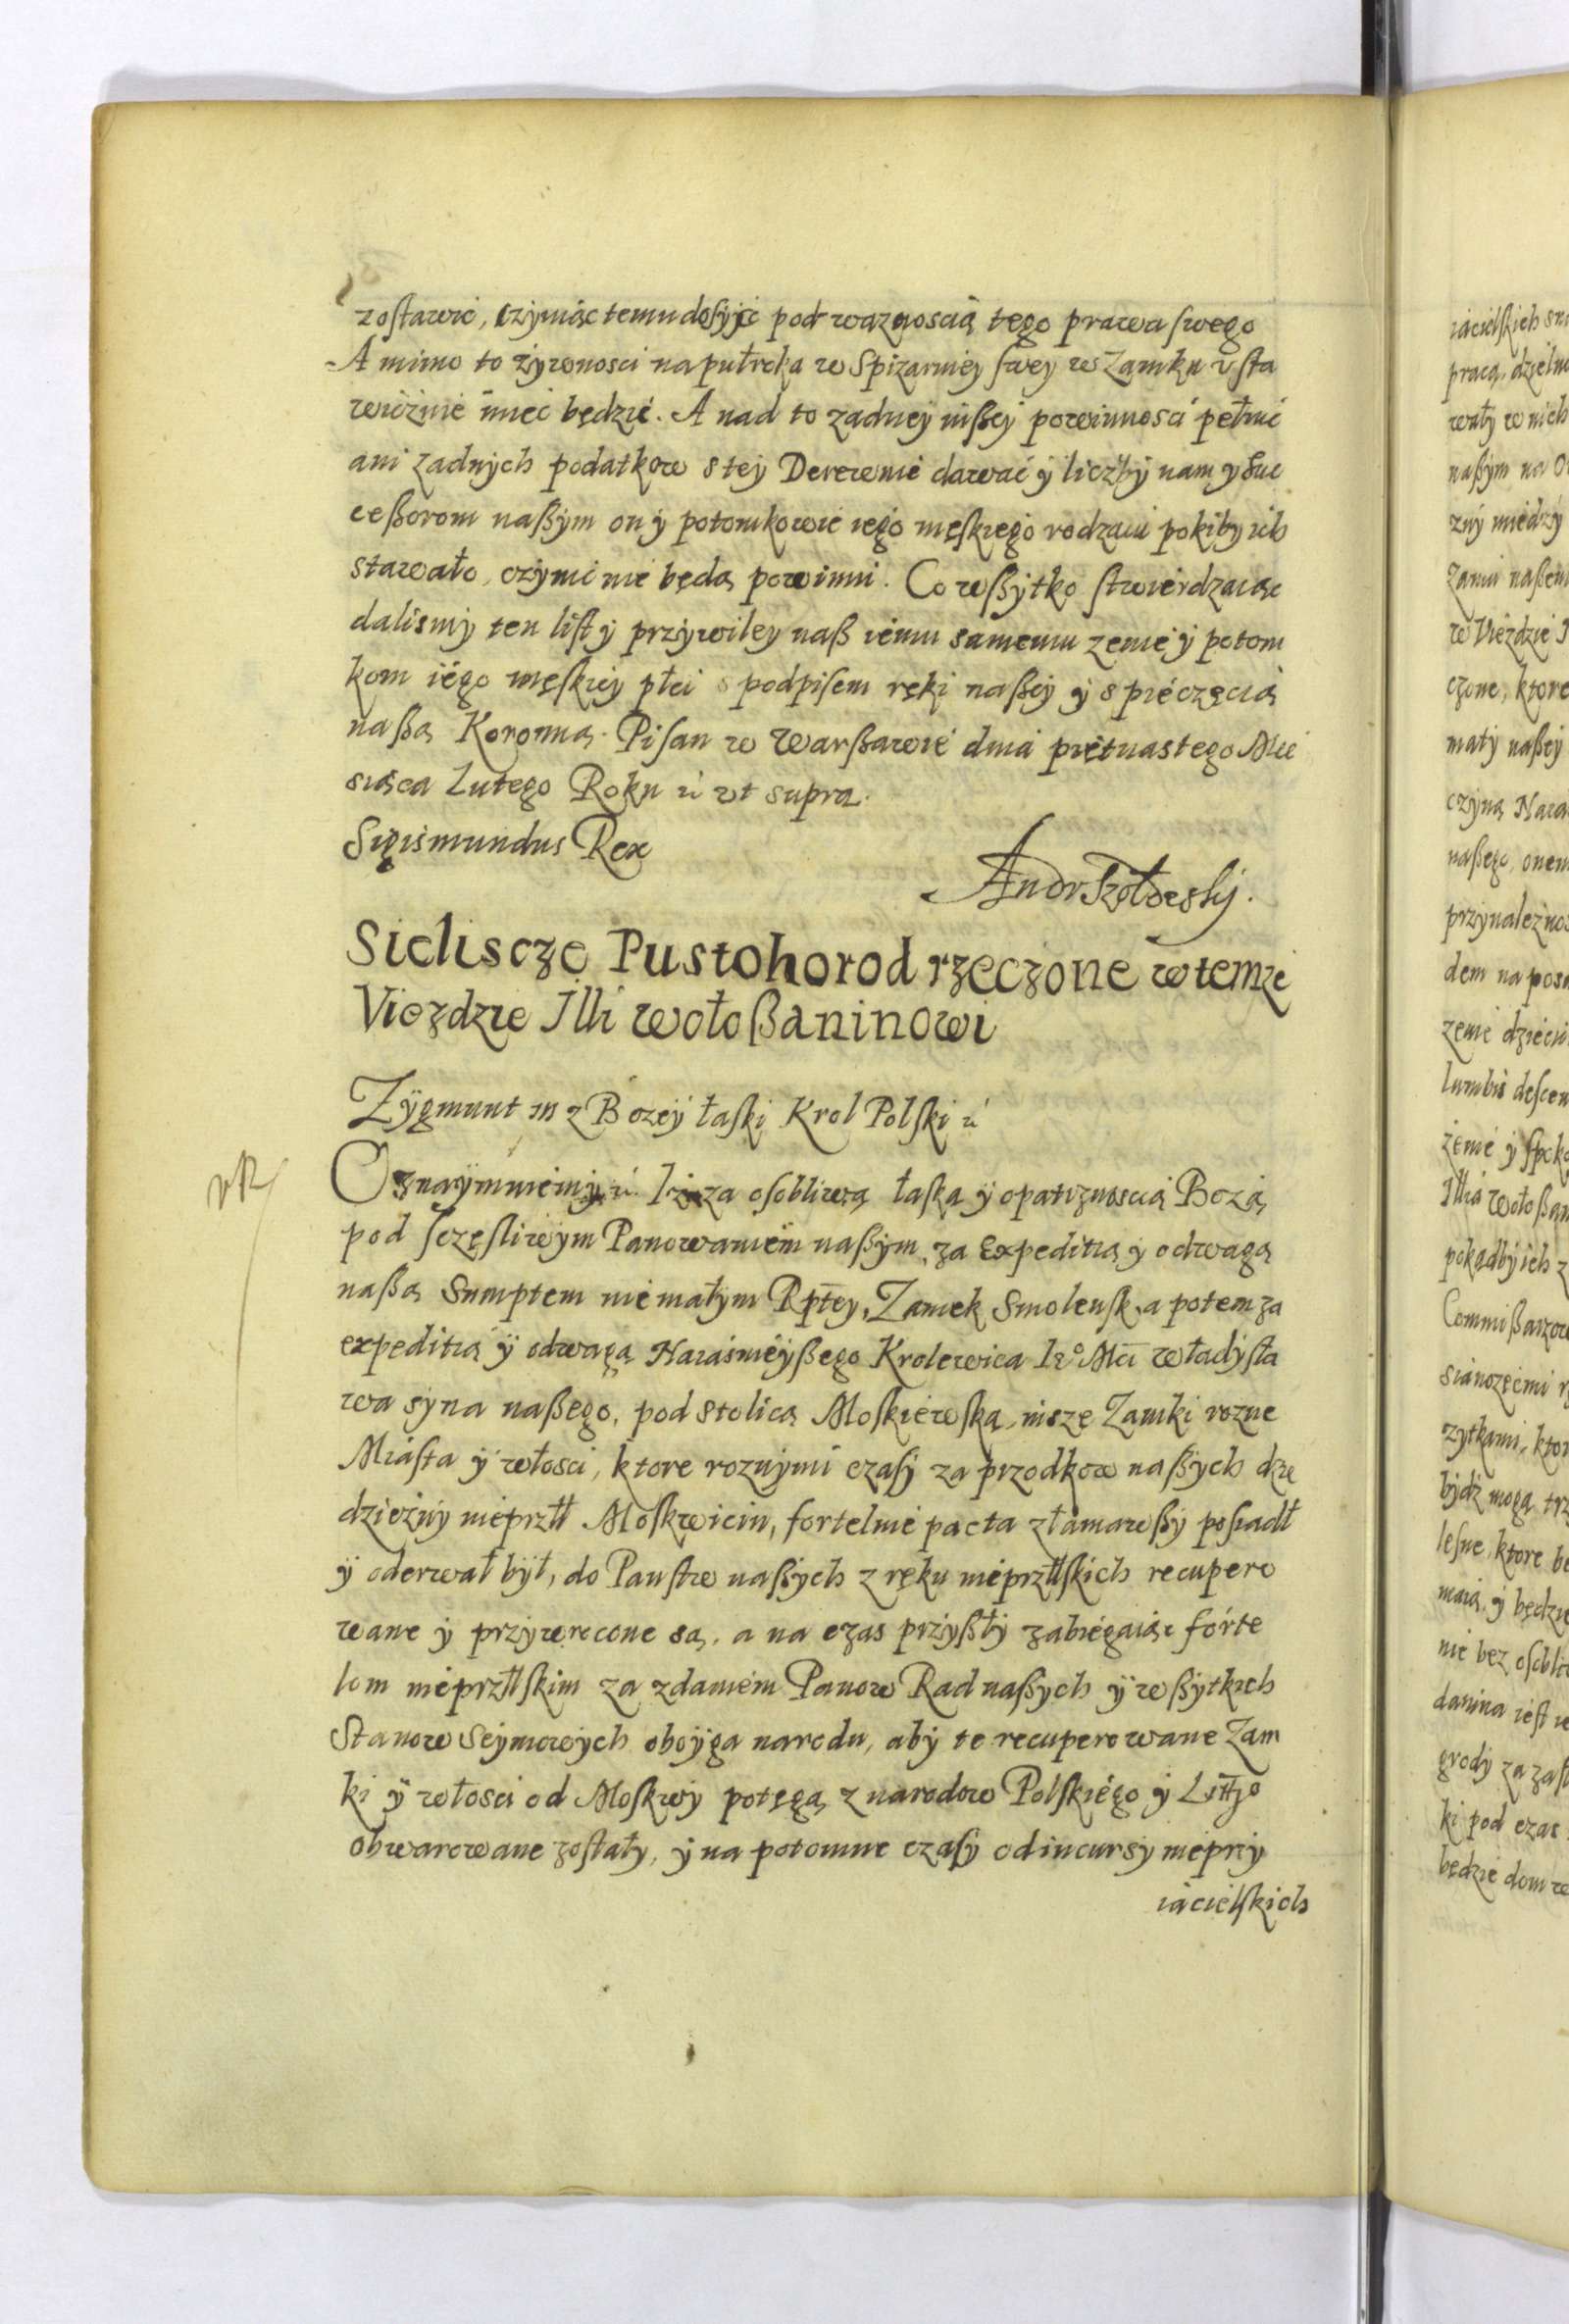 zostawić, czyniąc temu dosyjć pod waznoscią tego prawa swego
A mimo to żywnosci na pułroka w Spizarniey swey w Zamku vsta
wicżnie miec będzie. A nad to zadney inßey powinnosci pełnić
ani zadnych podatkow s tey Derewnie dawać ÿ liczbÿ nam y Suc
ceßorom naßÿm on ÿ potomkowie iego męskiego rodzaiu pokiby ich
stawało, czÿnić nie będą powinni. Co wßÿtko stwierdzaiąc
dalismÿ ten list ÿ przÿwiley naß iemu samemu zenie ÿ potom
kom iego męskiey płci s podpisem ręki naßey ÿ s pieczęcią
naßą Koronną. Pisan w Warßawie dnia piętnastego Mie
siąca Lutego Roku ut supra.
Sigismundus Rex
Andr Szołdrskj.
Sieliscze Pustohorod rzeczone w temze
Viezdzie Illi wołoßaninowi
Zÿgmunt III z Bozey łaski Krol Polski
Oznaÿmuiemÿ Iż za osobliwą łaską ÿ opatrznoscią Bozą
pod sczęsliwÿm Panowaniem naßÿm, za Expeditią ÿ odwagą
naßą Sumptem niemałÿm Rptey, Zamek Smolensk, a potem za
expeditią ÿ odwagą Naiasnieÿßego Krolewica Ie° Mci władÿsła
wa sÿna naßego, pod stolicą Moskiewską, insze Zamki rozne
Miasta ÿ włosci, ktore roznÿmi czasÿ za przodkow naßÿch dzie
dzicżnÿ nieprztł Moskwicin, fortelnie pacta złamawßÿ posiadł
ÿ oderwał był, do Panstw naßÿch z ręku nieprztłskich recupero
wane ÿ przÿwrocone są. a na czas przÿßłÿ zabiegaiąc forte
lom nieprztłskim za zdaniem Panow Rad naßÿch ÿ wßÿtkich
Stanow Seÿmowÿch oboÿga narodu, abÿ te recuperowane Zam
ki ÿ włosci od Moskwÿ potęgą z narodow Polskiego ÿ Littgo
obwarowane zostałÿ, ÿ na potomne czasÿ od incursÿ nieprzÿ
iacielskich